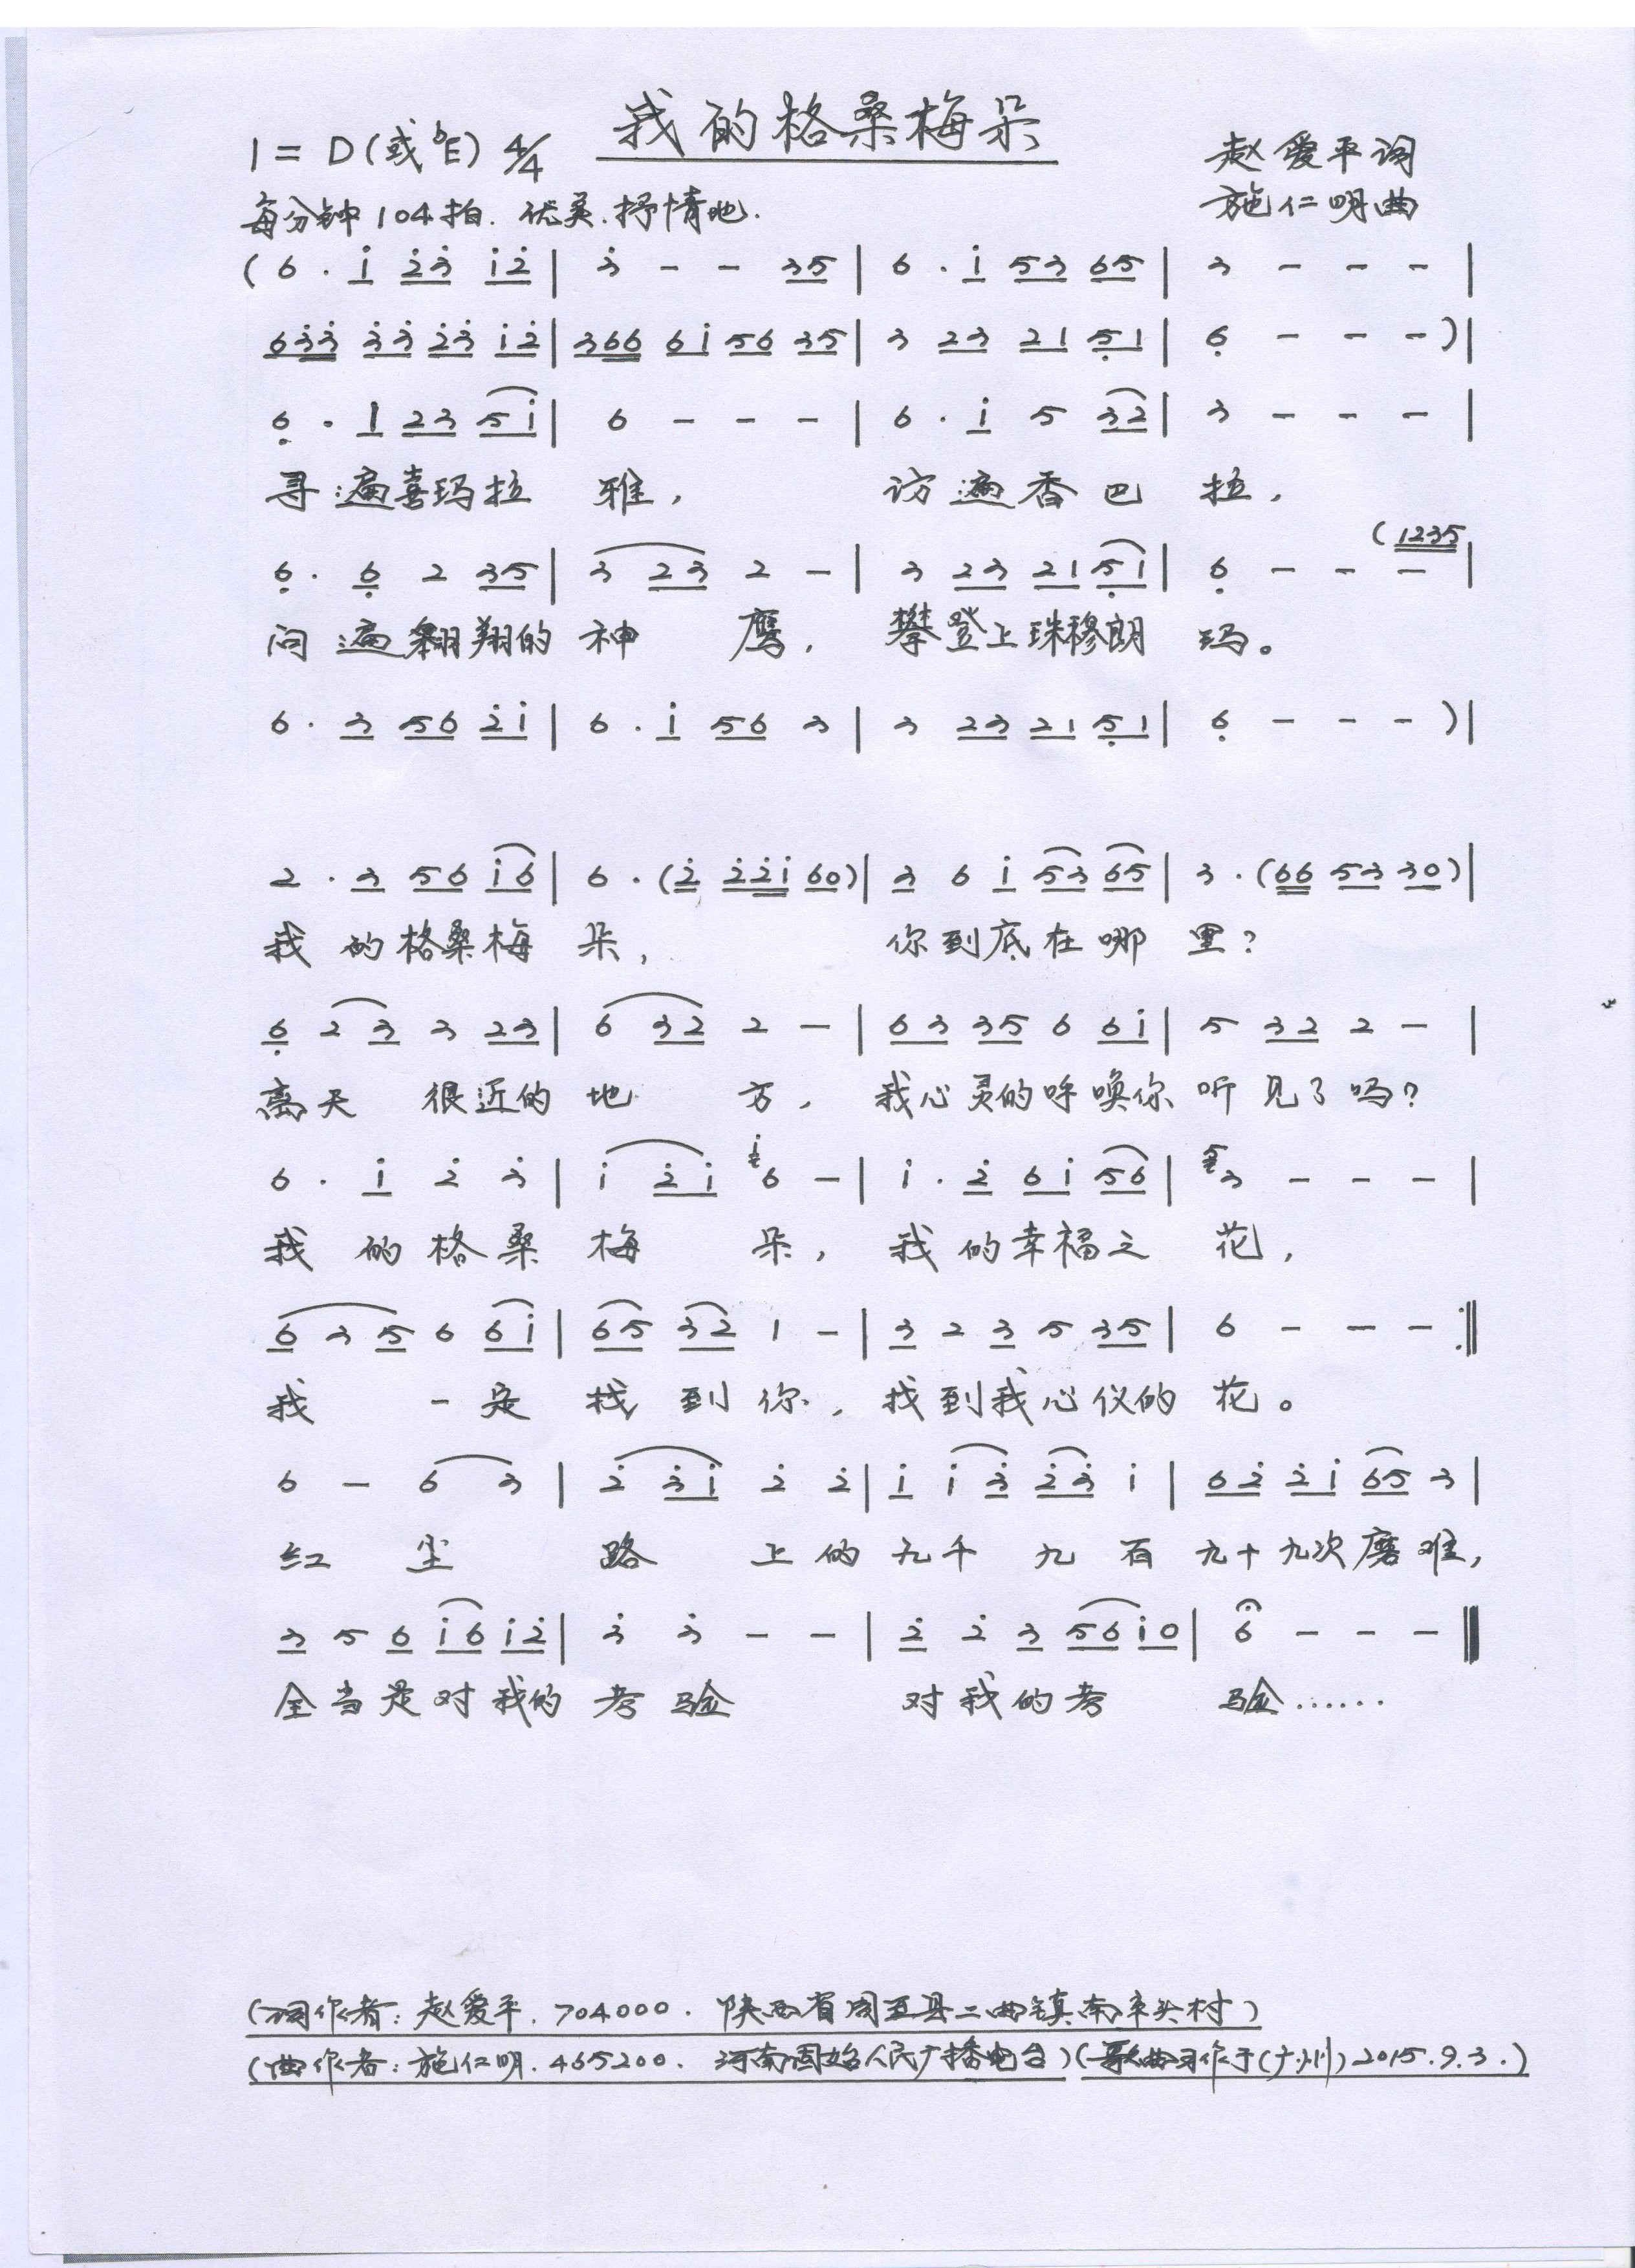 我的格桑梅朵
1 = D(或ᵇE) 4/4
赵爱平词
每分钟104拍. 优美.抒情地.
施仁明曲
( 6 . i̇ 2̇3̇ i̇2̇ | 3̇ - - 35 | 6 . i̇ 53 65 | 3 - - - |
63̇3̇ 3̇3̇ 2̇3̇ i̇2̇ | 366 6i̇ 56 35 | 3 23 21 5̣1 | 6̣ - - - ) |
6̣ . 1 23 5i̇ | 6 - - - | 6 . i̇ 5 32 | 3 - - - |
寻遍喜玛拉 雅, 访遍香巴 拉,
( 1235
6̣ . 6̣ 2 35 | 3 23 2 - | 3 23 21 5̣1 | 6̣ - - - |
问遍翱翔的 神 鹰, 攀登上珠穆朗 玛。
6 . 3 56 2̇i̇ | 6 . i̇ 56 3 | 3 23 21 5̣1 | 6̣ - - - ) |
2 . 3 56 i̇6 | 6 . (2̇ 2̇2̇i̇ 60) | 3 6 i̇ 53 65 | 3 . (66 53 30) |
我 的格桑梅 朵, 你到底在哪 里?
6̣ 2 3 3 23 | 6 32 2 - | 63 35 6 6i̇ | 5 32 2 - |
离天 很近的 地 方, 我心灵的呼唤你 听见了吗?
6 . i̇ 2̇ 3̇ | i̇ 2̇i̇ i̇6 - | i̇ . 2̇ 6i̇ 56 | 53 - - - |
我 的格桑 梅 朵, 我的幸福之 花,
6 3 5 6 6i̇ | 65 32 1 - | 3 2 3 5 35 | 6 - - - :‖
我 一定 找到你, 找到我心仪的 花。
6 - 6 3 | 2̇ 3̇i̇ 2̇ 2̇ | i̇ i̇ 3̇ 2̇3̇ i̇ | 62̇ 2̇i̇ 65 3 |
红 尘 路 上的 九千 九 百 九十九次磨难,
3 5 6 i̇6 i̇2̇ | 3̇ 3̇ - - | 2̇ 2̇ 3 56 i̇0 | 6̇ - - - ‖
全当是对我的 考验 对我的考 验……
(词作者: 赵爱平. 704000. 陕西省周至县二曲镇南辛头村)
(曲作者: 施仁明. 465200. 河南固始人民广播电台)(歌曲习作于(广州) 2015.9.3.)